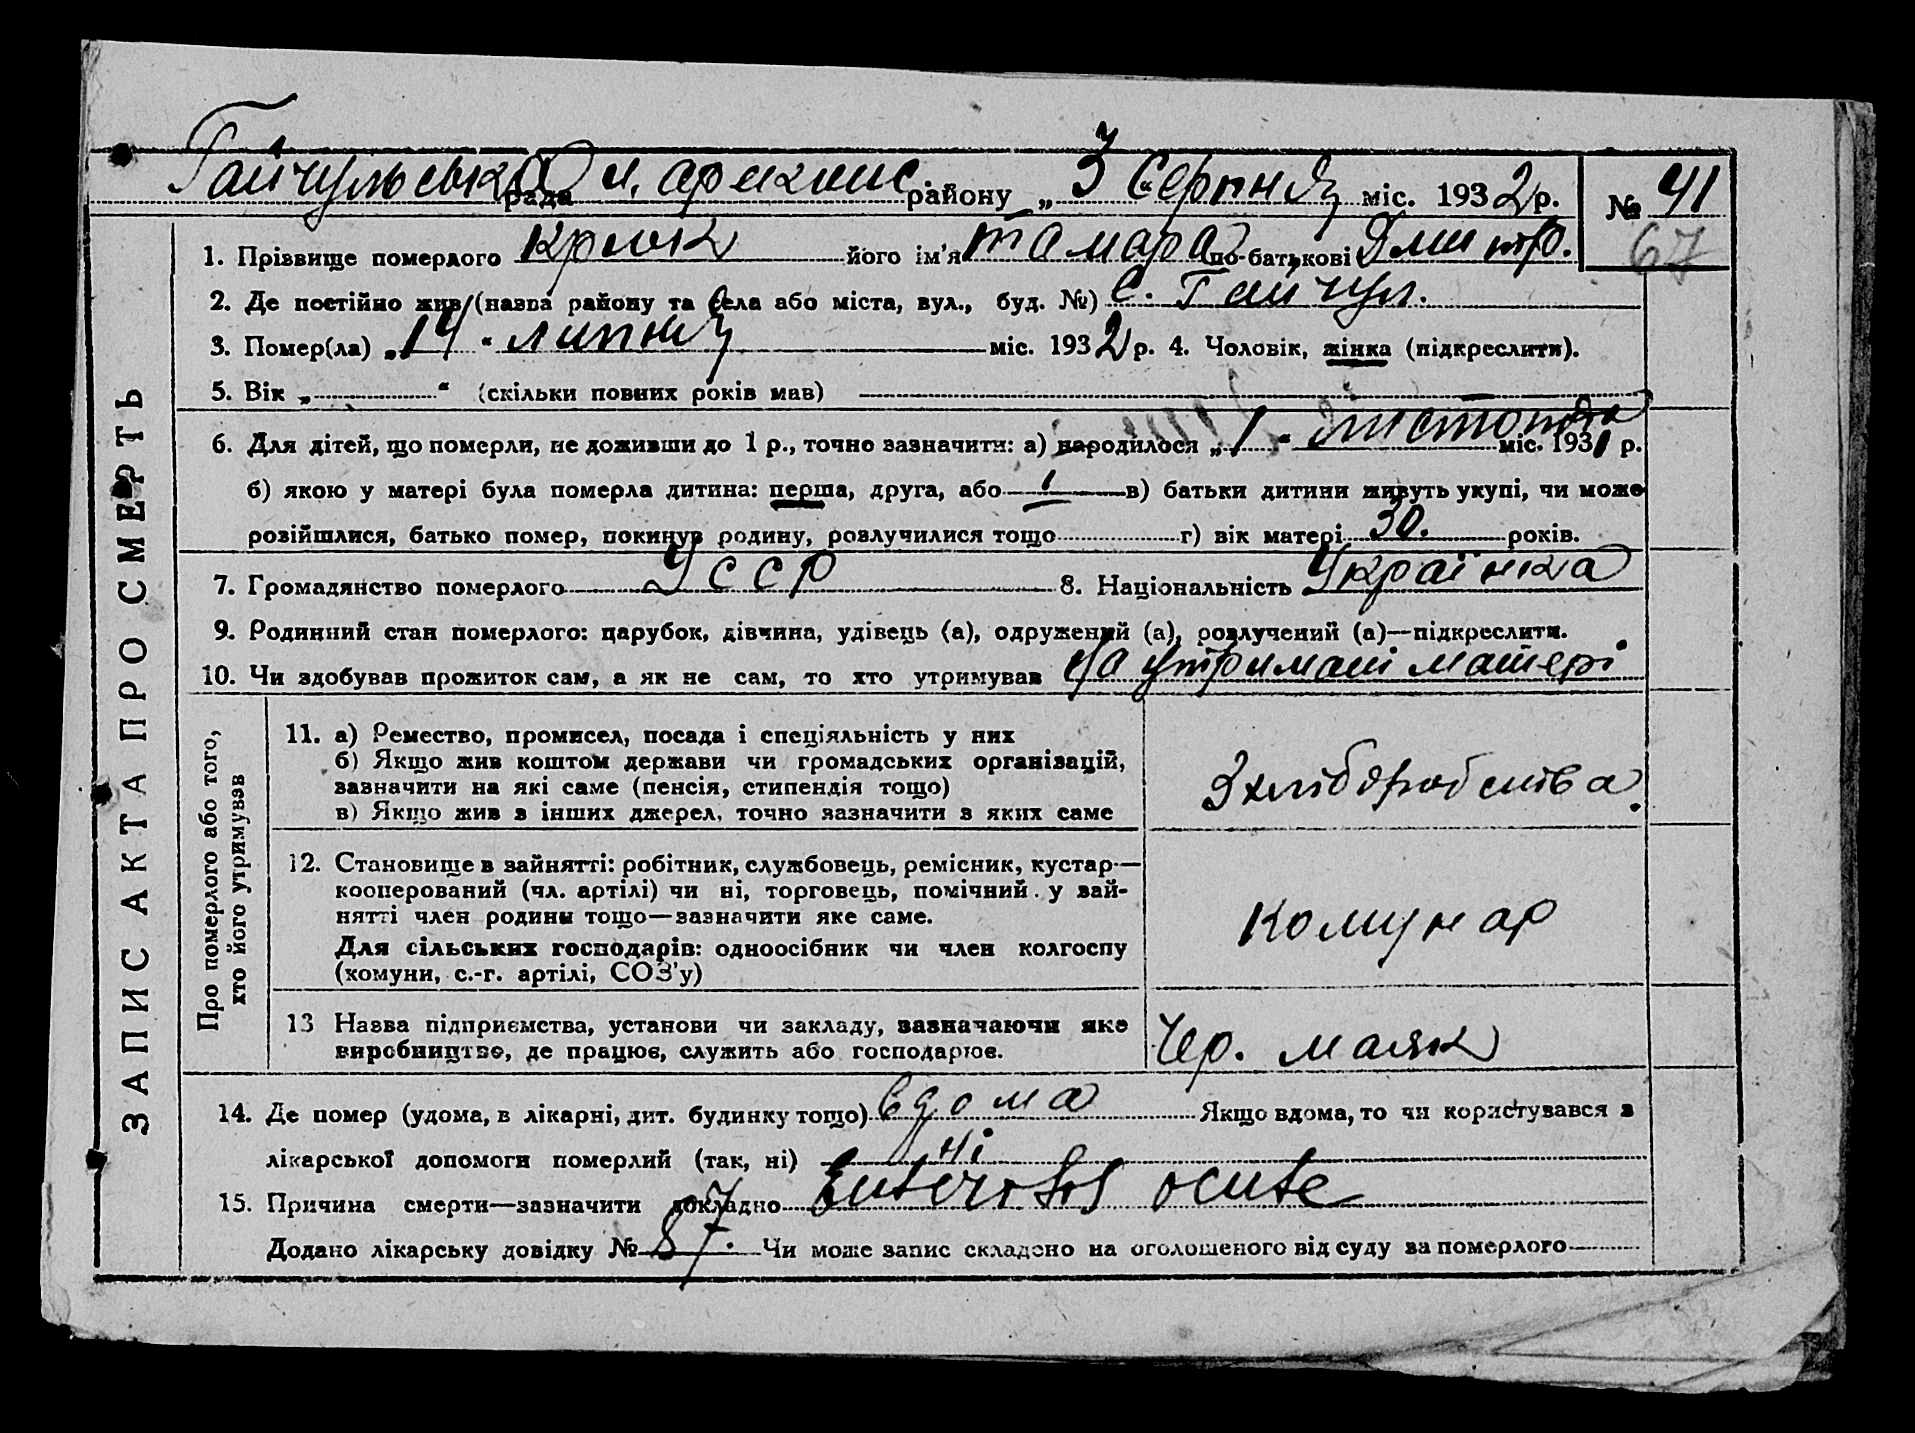 Гайчульська рада району „ 3 Серпня міс. 1932 р. № 41
67
1. Прізвище померлого Крюк його ім'я Тамара по-батькові Дмитр.
2. Де постійно жив (назва району та села або міста, вул., буд. №) с. Гайчул.
3. Помер(ла) „ 14 “ липня міс. 1932 р. 4. Чоловік, жінка (підкреслити).
5. Вік „ “ (скільки повних років мав)
6. Для дітей, що померли, не доживши до 1 р., точно зазначити: а) народилося „ 1 “ листопада міс. 1931 р.
б) якою у матері була померла дитина: перша, друга, або 1 в) батьки дитини живуть укупі, чи може
розійшлися, батько помер, покинув родину, розлучилися тощо г) вік матері 30. років.
7. Громадянство померлого УССР 8. Національність Українка
9. Родинний стан померлого: парубок, дівчина, удівець (а), одружений (а), розлучений (а)—підкреслити.
10. Чи здобував прожиток сам, а як не сам, то хто утримував На утримані матері
ЗАПИС АКТА ПРО СМЕРТЬ
Про померлого або того,
хто його утримував
11. а) Ремество, промисел, посада і спеціяльність у них
б) Якщо жив коштом держави чи громадських організацій,
зазначити на які саме (пенсія, стипендія тощо)
в) Якщо жив з інших джерел, точно зазначити з яких саме
З хліборобства.
12. Становище в зайнятті: робітник, службовець, ремісник, кустар—
кооперований (чл. артілі) чи ні, торговець, помічний у зай-
нятті член родини тощо—зазначити яке саме.
Для сільських господарів: одноосібник чи член колгоспу
(комуни, с.-г. артілі, СОЗ'у)
комунар
13 Назва підприємства, установи чи закладу, зазначаючи яке
виробництво, де працює, служить або господарює.
Чер. маяк
14. Де помер (удома, в лікарні, дит. будинку тощо) вдома Якщо вдома, то чи користувався з
лікарської допомоги померлий (так, ні) ні
15. Причина смерти—зазначити докладно acute
Додано лікарську довідку № 87. Чи може запис складено на оголошеного від суду за померлого